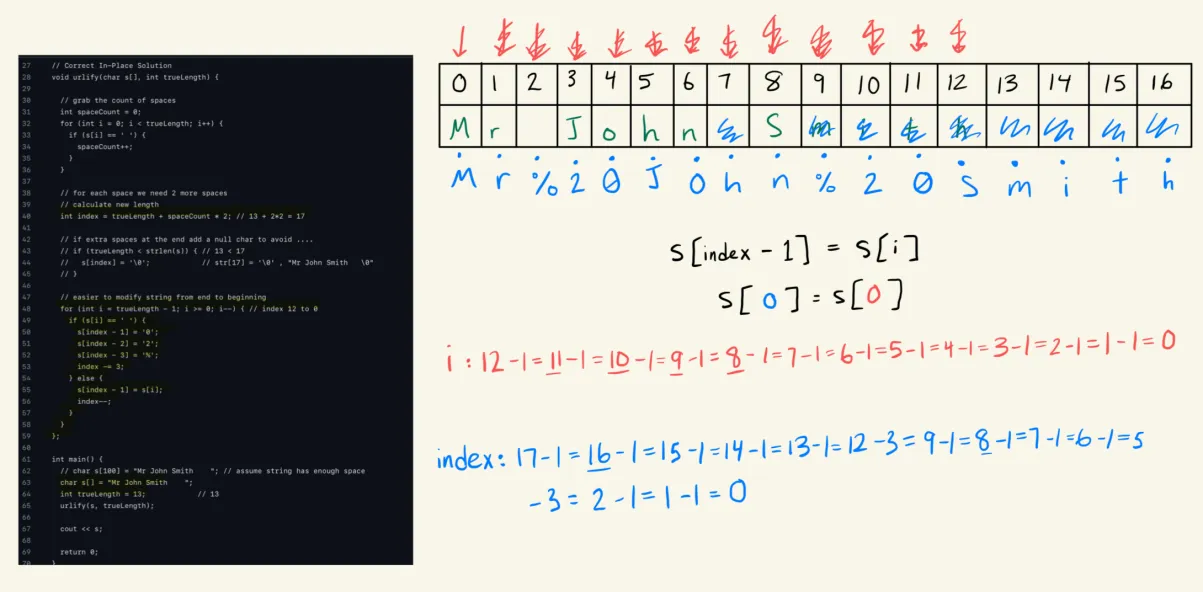 27 // Correct In-Place Solution
28 void urlify(char s[], int trueLength) {
29
30 // grab the count of spaces
31 int spaceCount = 0;
32 for (int i = 0; i < trueLength; i++) {
33 if (s[i] == ' ') {
34 spaceCount++;
35 }
36 }
37
38 // for each space we need 2 more spaces
39 // calculate new length
40 int index = trueLength + spaceCount * 2; // 13 + 2*2 = 17
41
42 // if extra spaces at the end add a null char to avoid ....
43 // if (trueLength < strlen(s)) { // 13 < 17
44 // s[index] = '\0'; // str[17] = '\0' , "Mr John Smith \0"
45 // }
46
47 // easier to modify string from end to beginning
48 for (int i = trueLength - 1; i >= 0; i--) { // index 12 to 0
49 if (s[i] == ' ') {
50 s[index - 1] = '0';
51 s[index - 2] = '2';
52 s[index - 3] = '%';
53 index -= 3;
54 } else {
55 s[index - 1] = s[i];
56 index--;
57 }
58 }
59 };
60
61 int main() {
62 // char s[100] = "Mr John Smith    "; // assume string has enough space
63 char s[] = "Mr John Smith    ";
64 int trueLength = 13; // 13
65 urlify(s, trueLength);
66
67 cout << s;
68
69 return 0;
70 }
0 1 2 3 4 5 6 7 8 9 10 11 12 13 14 15 16
M r J o h n S
M r % 2 0 J o h n % 2 0 S m i t h
S[index - 1] = S[i]
S[0] = S[0]
i : 12 - 1 = 11 - 1 = 10 - 1 = 9 - 1 = 8 - 1 = 7 - 1 = 6 - 1 = 5 - 1 = 4 - 1 = 3 - 1 = 2 - 1 = 1 - 1 = 0
index: 17 - 1 = 16 - 1 = 15 - 1 = 14 - 1 = 13 - 1 = 12 - 3 = 9 - 1 = 8 - 1 = 7 - 1 = 6 - 1 = 5
- 3 = 2 - 1 = 1 - 1 = 0